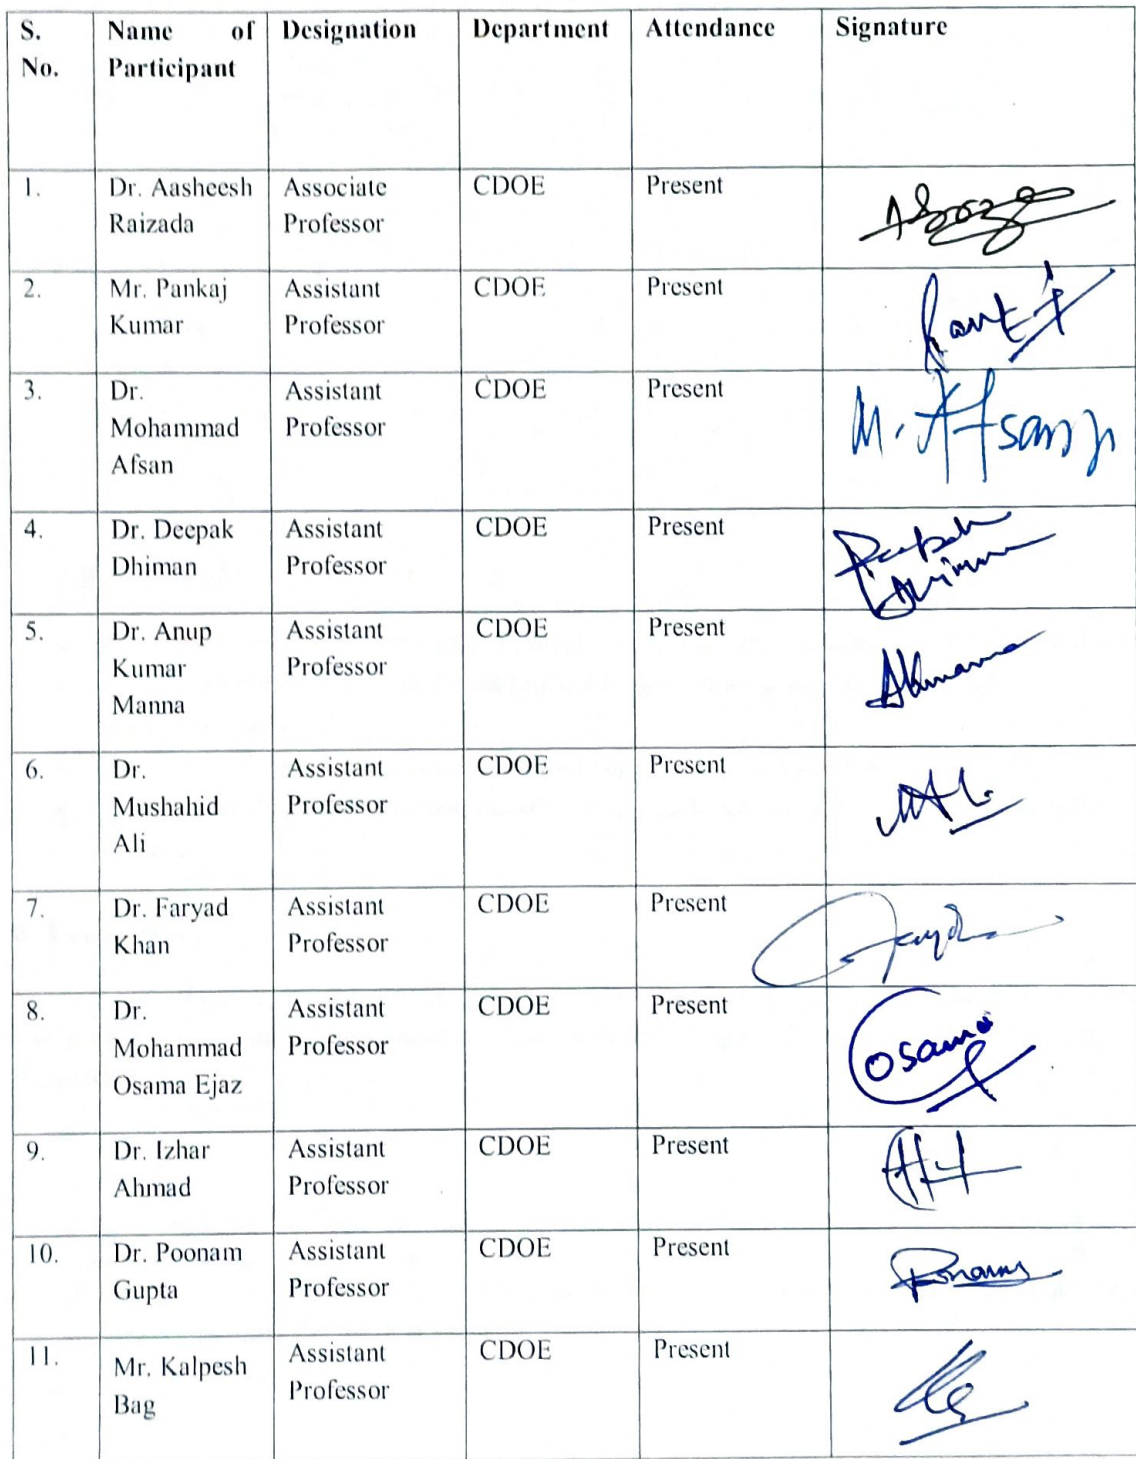 S. No. Name of Participant Designation Department Attendance Signature
1. Dr. Aasheesh Raizada Associate Professor CDOE Present
2. Mr. Pankaj Kumar Assistant Professor CDOE Present
3. Dr. Mohammad Afsan Assistant Professor CDOE Present M. Afsan
4. Dr. Deepak Dhiman Assistant Professor CDOE Present Deepak Dhiman
5. Dr. Anup Kumar Manna Assistant Professor CDOE Present AKmanna
6. Dr. Mushahid Ali Assistant Professor CDOE Present
7. Dr. Faryad Khan Assistant Professor CDOE Present
8. Dr. Mohammad Osama Ejaz Assistant Professor CDOE Present Osama
9. Dr. Izhar Ahmad Assistant Professor CDOE Present
10. Dr. Poonam Gupta Assistant Professor CDOE Present
11. Mr. Kalpesh Bag Assistant Professor CDOE Present